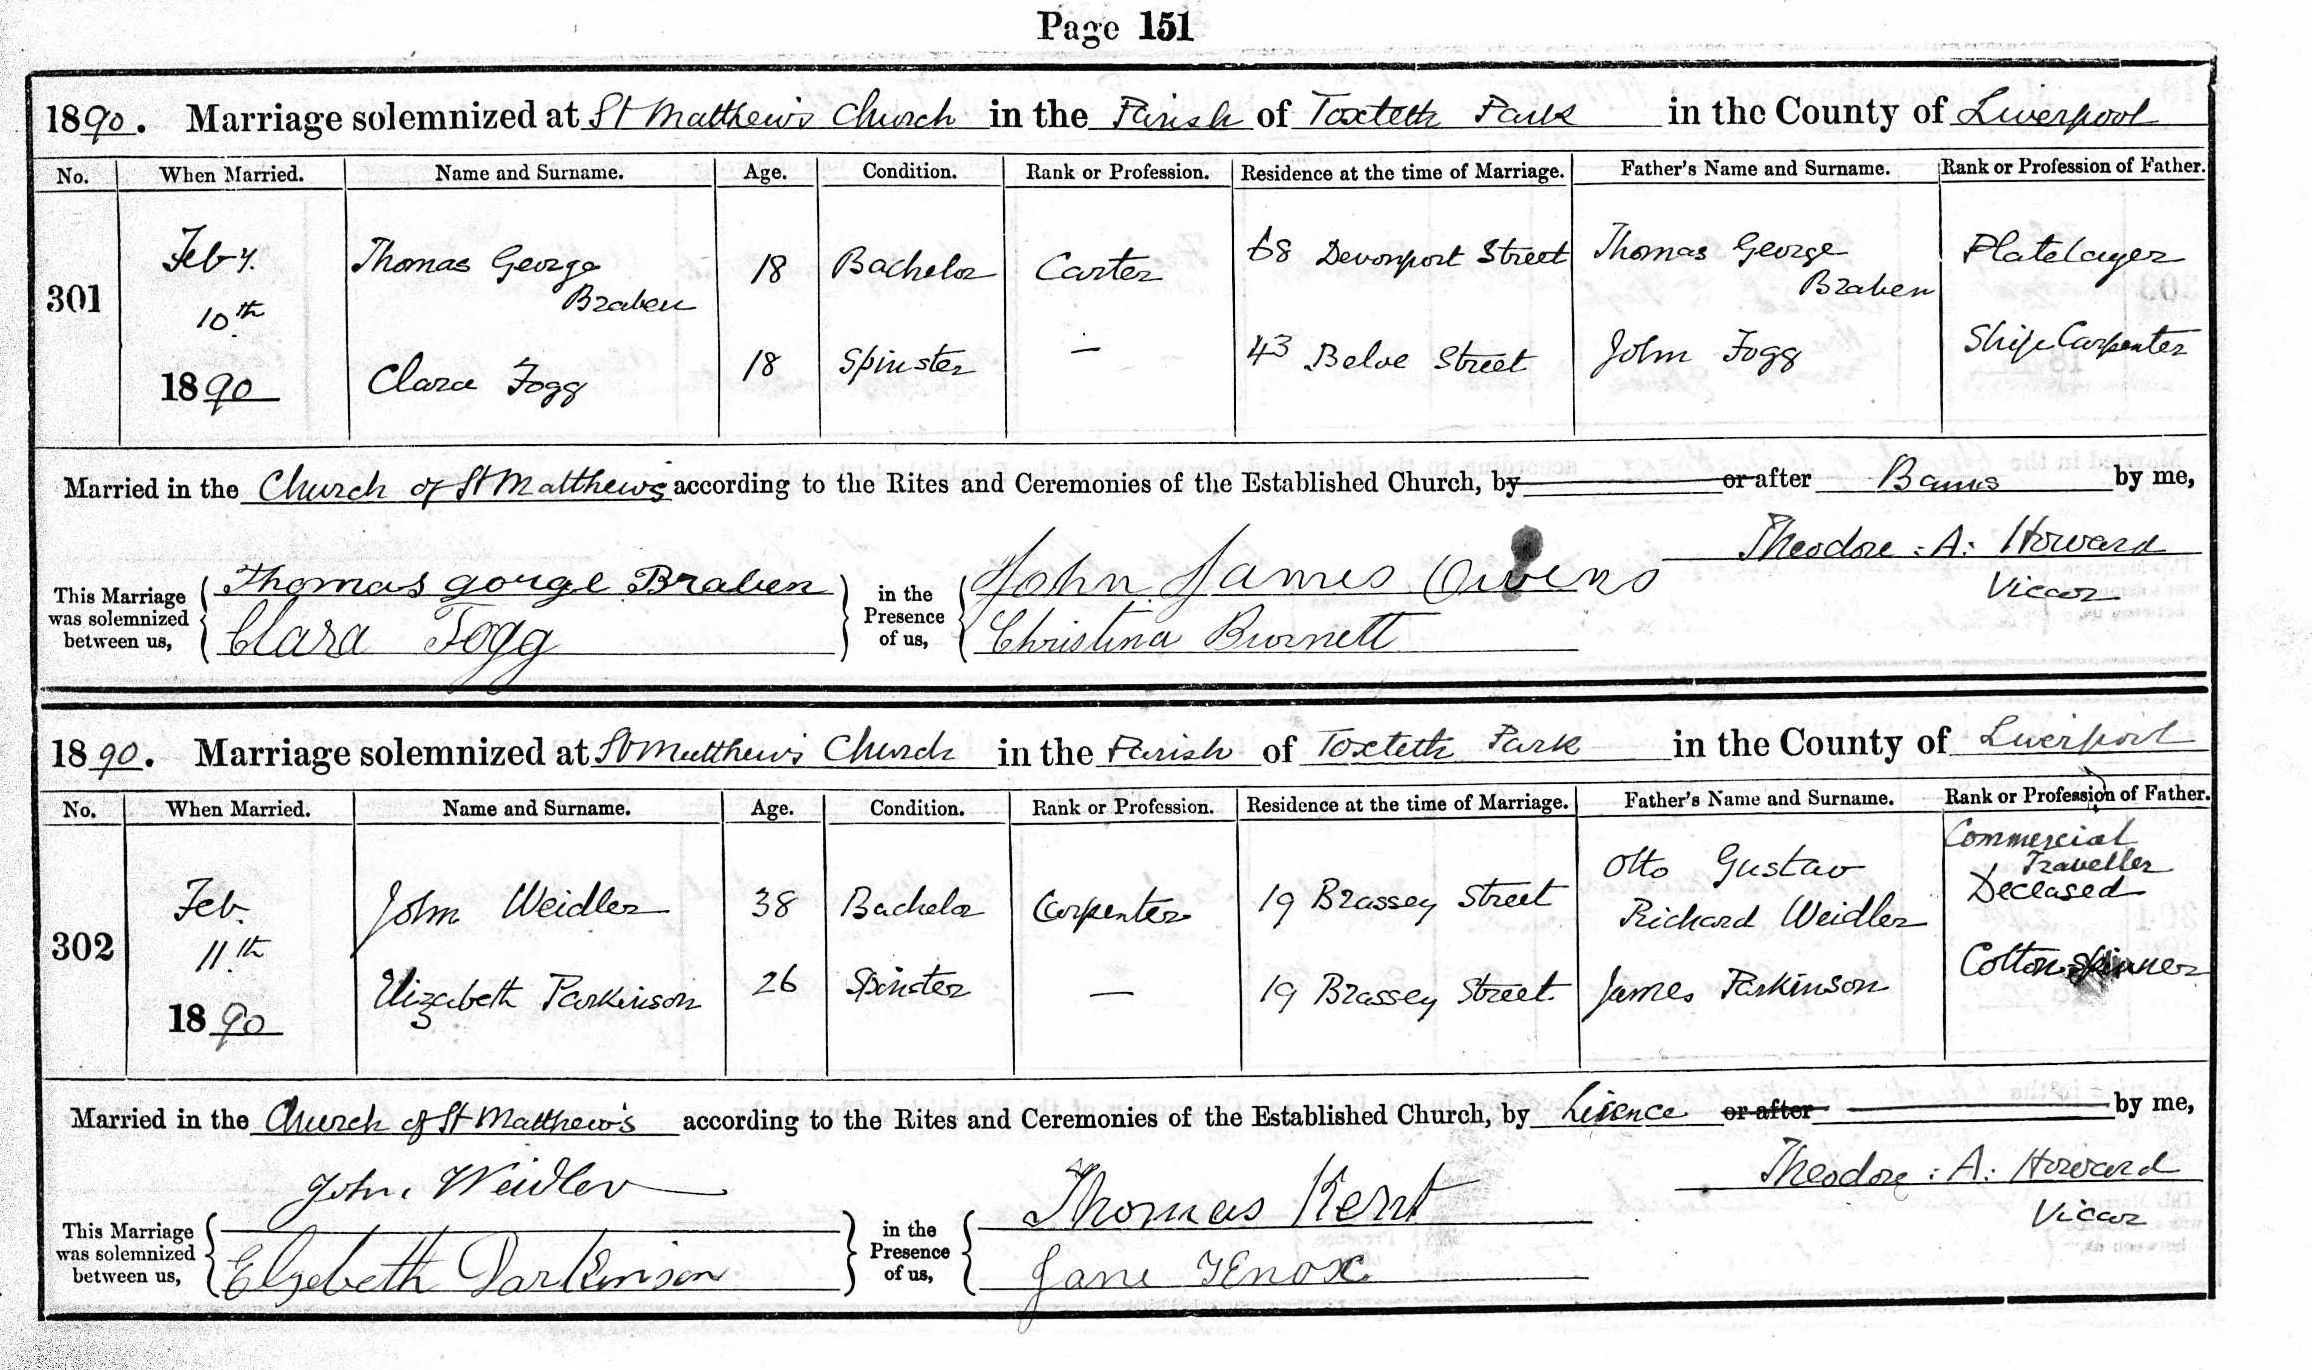 Page 151
1890. Marriage solemnized at St Matthew's Church in the Parish of Toxteth Park in the County of Liverpool
No. When Married. Name and Surname. Age. Condition. Rank or Profession. Residence at the time of Marriage. Father's Name and Surname. Rank or Profession of Father.
301 Feby. 10th 1890
Thomas George Braben 18 Bachelor Carter 68 Devonport Street Thomas George Braben Platelayer
Clara Fogg 18 Spinster — 43 Beloe Street John Fogg Ship Carpenter
Married in the Church of St Matthews according to the Rites and Ceremonies of the Established Church, by or after Banns by me,
Theodore : A : Howard
Vicar
This Marriage was solemnized between us, Thomas gorge Braben
Clara Fogg
in the Presence of us, John James Owens
Christina Burnett
1890. Marriage solemnized at St Matthew's Church in the Parish of Toxteth Park in the County of Liverpool
No. When Married. Name and Surname. Age. Condition. Rank or Profession. Residence at the time of Marriage. Father's Name and Surname. Rank or Profession of Father.
302 Feb. 11th 1890
John Weidler 38 Bachelor Carpenter 19 Brassey Street Otto Gustav Richard Weidler Commercial Traveller Deceased
Elizabeth Parkinson 26 Spinster — 19 Brassey Street James Parkinson Cotton Spinner
Married in the Church of St Matthew's according to the Rites and Ceremonies of the Established Church, by Lisence or after by me,
Theodore : A : Howard
Vicar
This Marriage was solemnized between us, John Weidler
Elzebeth Parkinson
in the Presence of us, Thomas Kent
Jane